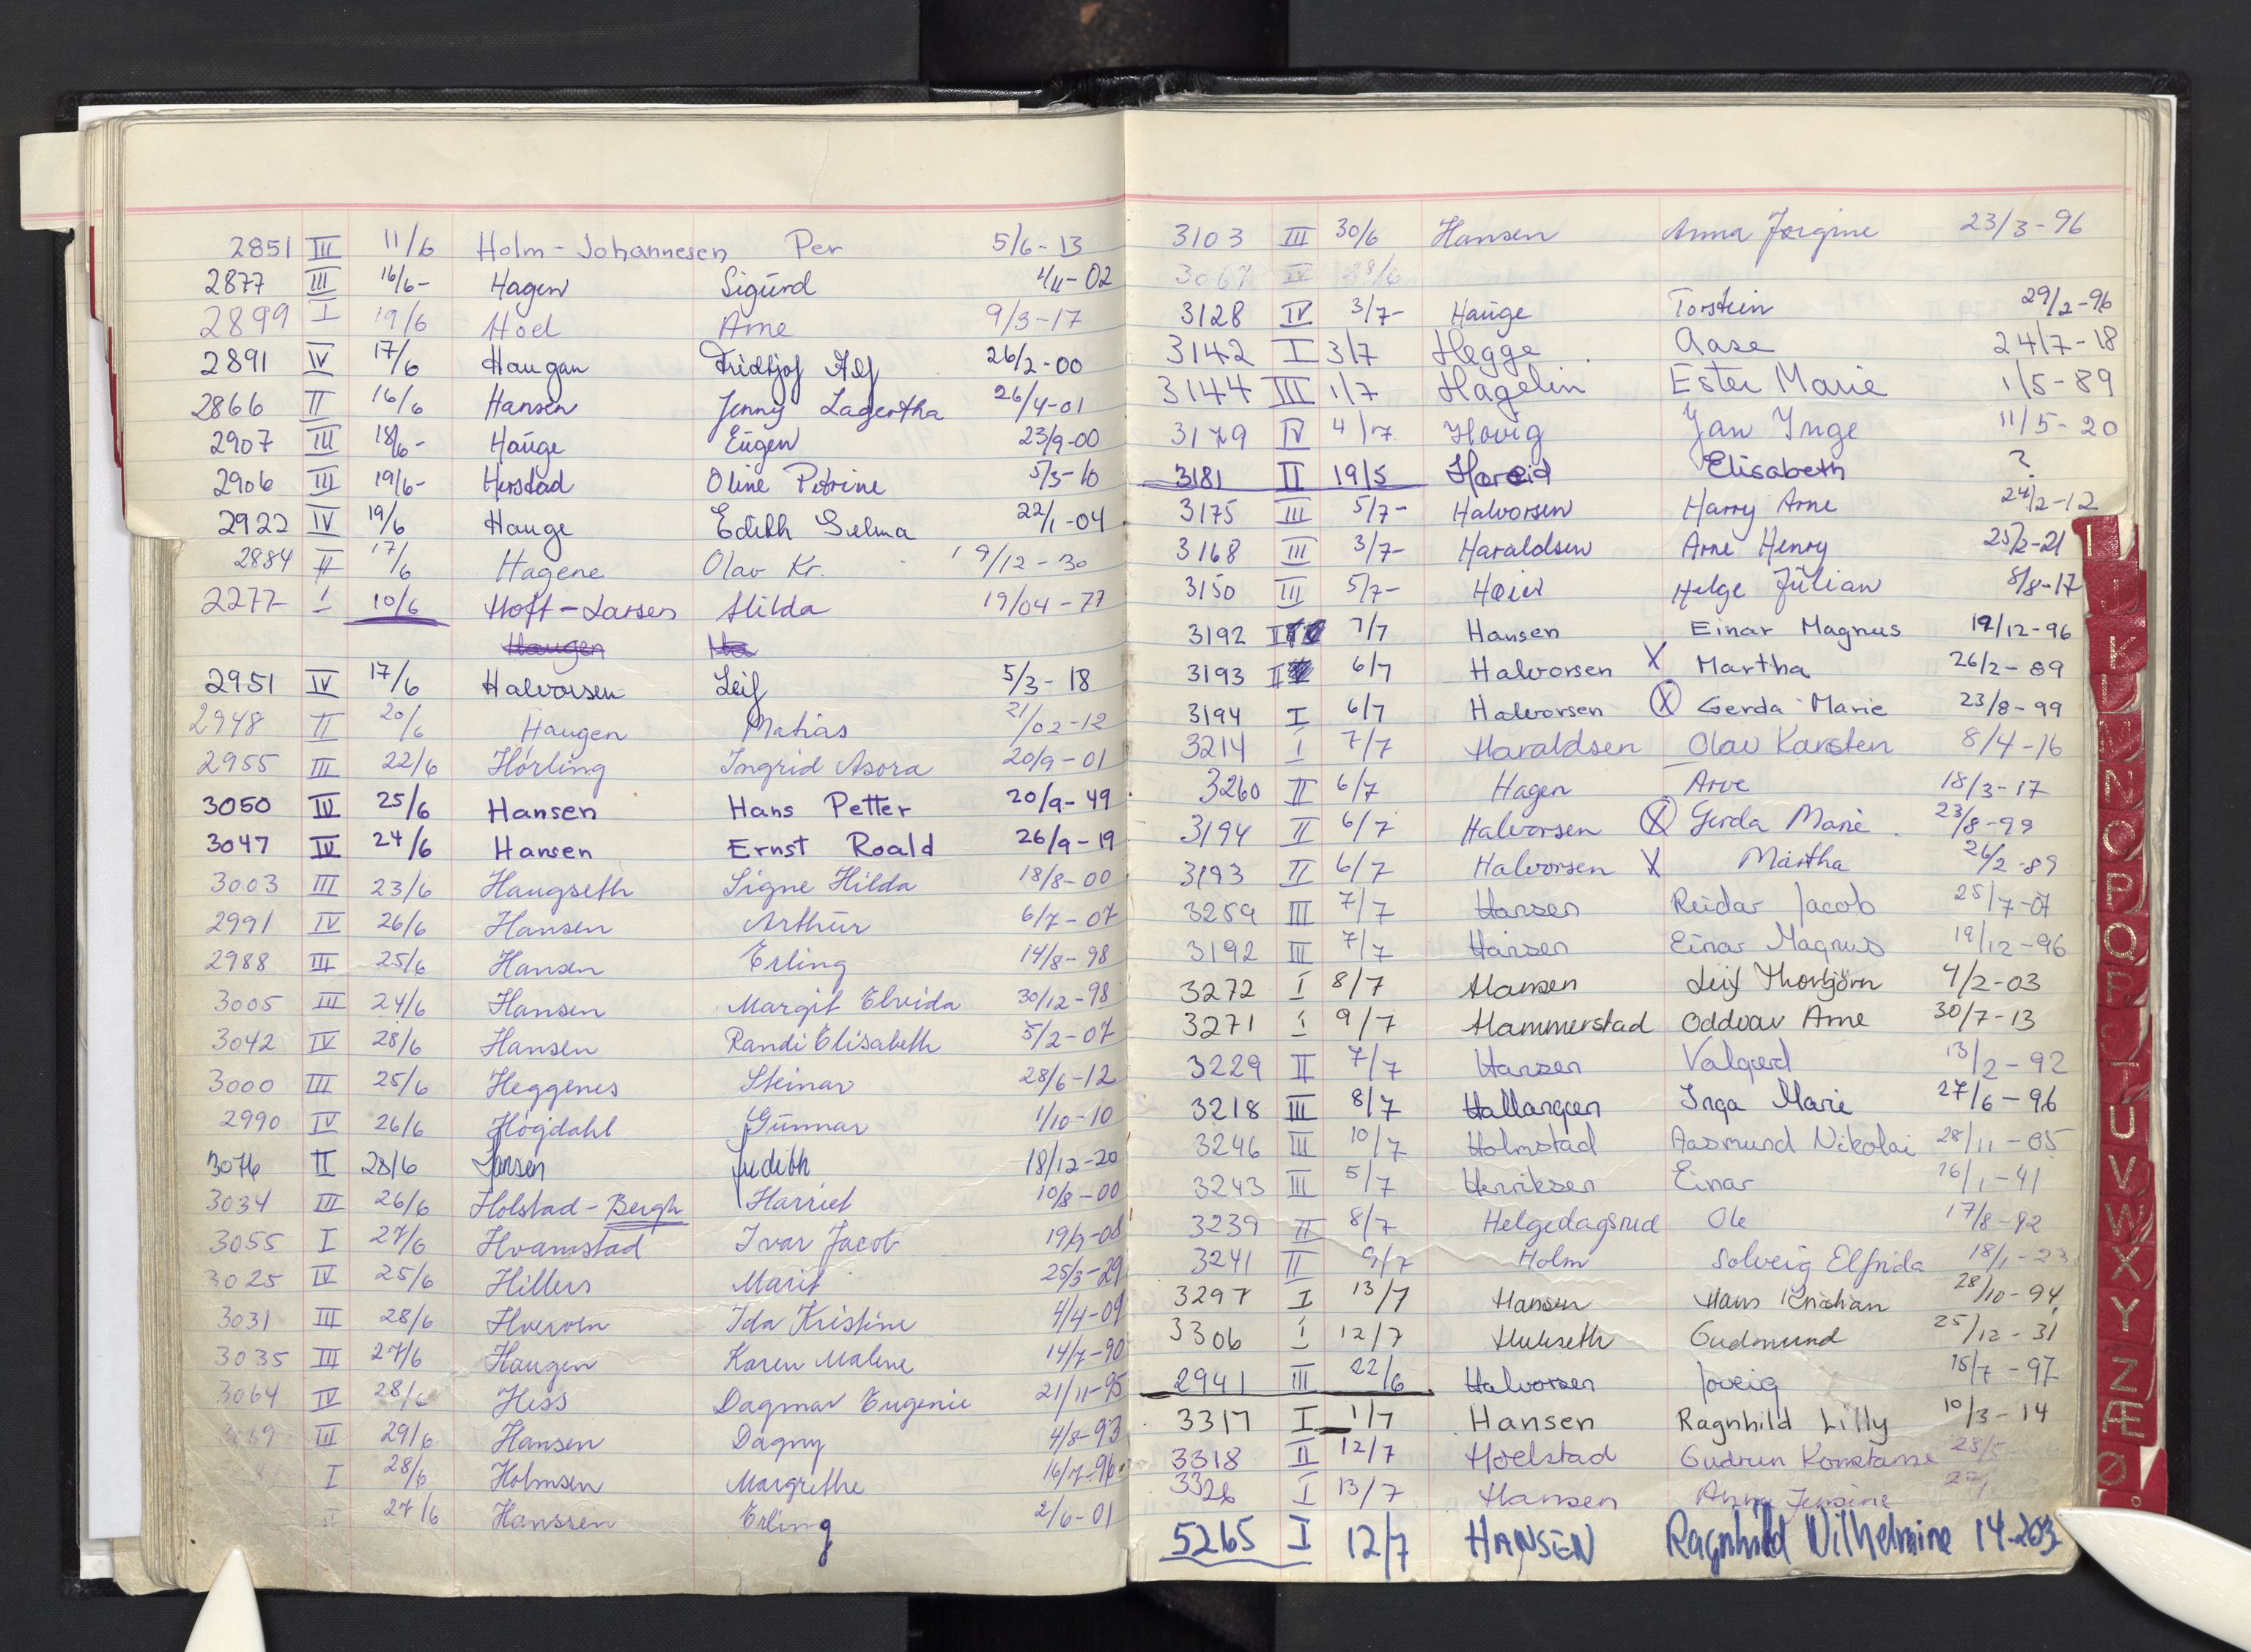 2851 III 11/6 Holm-Johannesen Per 5/6-13
2877 III 16/6- Hagen Sigurd 4/11-02
2899 I 19/6 Hoel Arne 9/3-17
2891 IV 17/6 Haugan Fridtjof Alf 26/2-00
2866 II 16/6 Hansen Jenny Lagertha 26/4-01
2907 III 18/6- Hauge Eugen 23/9-00
2906 III 19/6- Herstad Oline Petrine 5/3-10
2922 IV 19/6 Hauge Edith Selma 22/1-04
2884 II 17/6 Hagene Olav Kr. 19/12-30
2277 I 10/6 Hoft-Larsen Hilda 19/04-77
Haugen Ha
2951 IV 17/6 Halvorsen Leif 5/3-18
2948 II 20/6 Haugen Mathias 21/02-12
2955 III 22/6 Hørling Ingrid Asora 20/9-01
3050 IV 25/6 Hansen Hans Petter 20/9-49
3047 IV 24/6 Hansen Ernst Roald 26/9-19
3003 III 23/6 Haugseth Signe Hilda 18/8-00
2991 IV 26/6 Hansen Arthur 6/7-07
2988 III 25/6 Hansen Erling 14/8-98
3005 III 24/6 Hansen Margit Elvida 30/12-98
3042 IV 28/6 Hansen Randi Elisabeth 5/2-07
3000 III 25/6 Heggenes Steinar 28/6-12
2990 IV 26/6 Høgdahl Gunnar 1/10-10
3076 II 28/6 Judith 18/12-20
3034 III 26/6 Holstad-Bergh Harriet 10/8-00
3055 I 27/6 Hvamstad Ivar Jacob 19/9-08
3025 IV 25/6 Hillers Marit 25/3-29
3031 III 28/6 Hverven Ida Kristine 4/4-09
3035 III 27/6 Haugen Karen Malene 14/7-90
3064 IV 28/6 Hess Dagmar Eugenie 21/11-95
III 29/6 Hansen Dagny 4/8-93
I 28/6 Holmsen Margrethe 16/7-96
27/6 Hanssen Erling 2/6-01
3103 III 30/6 Hansen Anna Jørgine 23/3-96
3067 IV 28/6
3128 IV 3/7- Hauge Torstein 29/2-96
3142 I 3/7 Hegge Aase 24/7-18
3144 III 1/7 Hagelin Ester Marie 1/5-89
3179 IV 4/7 Hovig Jan Inge 11/5-20
3181 II 19/5 Hareid Elisabeth ?
3175 III 5/7- Halvorsen Harry Arne 24/2-12
3168 III 3/7- Haraldsen Arne Henry 25/2-21
3150 III 5/7- Høier Helge Julian 8/8-17
3192 7/7 Hansen Einar Magnus 19/12-96
3193 6/7 Halvorsen X Martha 26/2-89
3194 I 6/7 Halvorsen X Gerda Marie 23/8-99
3214 I 7/7 Haraldsen Olav Karsten 8/4-16
3260 II 6/7 Hagen Arve 18/3-17
3194 II 6/7 Halvorsen X Gerda Marie 23/8-99
3193 II 6/7 Halvorsen X Martha 26/2-89
3259 III 7/7 Hansen Reidar Jacob 25/7-07
3192 III 7/7 Hansen Einar Magnus 19/12-96
3272 I 8/7 Hansen Leif Thorbjörn 4/2-03
3271 I 9/7 Hammerstad Oddvar Arne 30/7-13
3229 II 7/7 Hansen Valgerd 13/2-92
3218 III 8/7 Hallangen Inga Marie 27/6-96
3246 III 10/7 Holmstad Aasmund Nikolai 28/11-05
3243 III 5/7 Henriksen Einar 16/1-41
3239 II 8/7 Helgedagsrud Ole 17/8-92
3241 II 9/7 Holm Solveig Elfrida 18/1-23
3297 I 13/7 Hansen Hans Kristian 28/10-94
3306 I 12/7 Gudmund 25/12-31
2941 III 22/6 Halvorsen 15/7-97
3317 I 1/7 Hansen Ragnhild Lilly 10/3-14
3318 II 12/7 Hoelstad Gudrun Konstanse 28/5
3326 I 13/7 Hansen Anna Jensine
5265 I 12/7 HANSEN Ragnhild Wilhelmine 14-203
I
J
K
L
M
N
O
P
Q
R
S
T
U
V
W
X
Y
Z
Æ
Ø